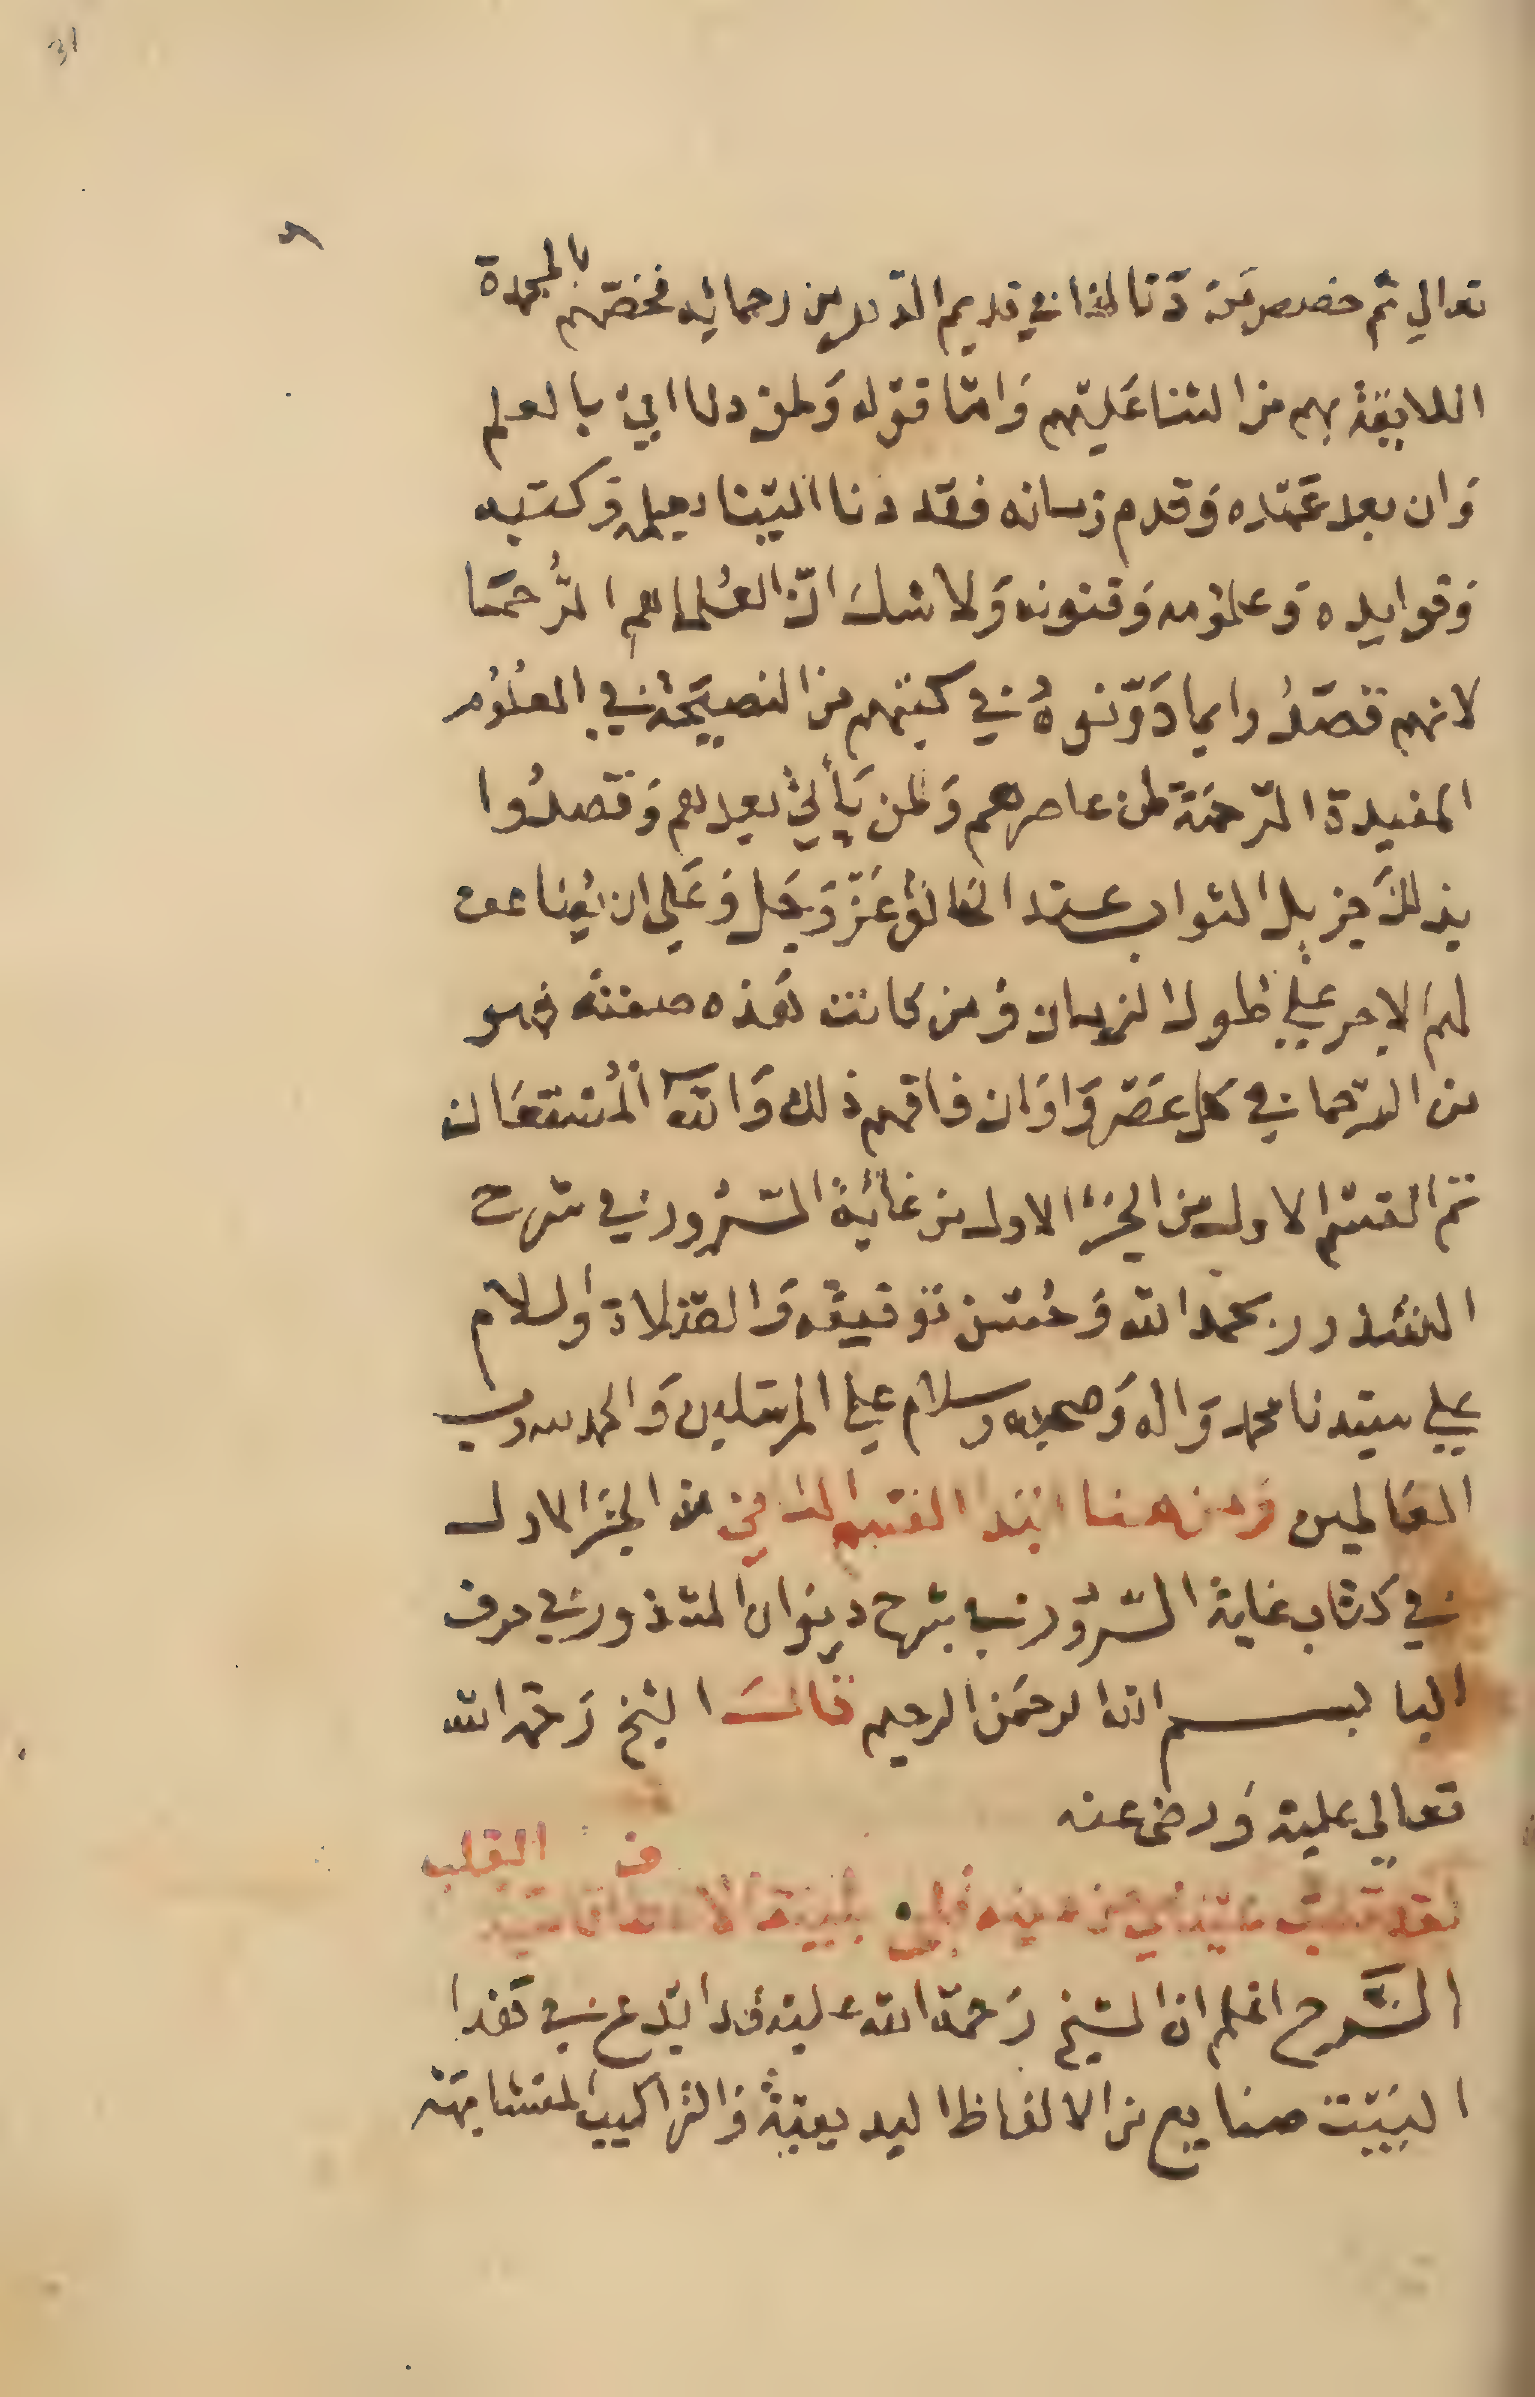 31
تعالي ثم خصص من دنا لنا في قديم الدهر من رحمائه فخصهم بالمجدة
اللايقة بهم من الثنا عليهم وَاما قوله وَلمن دنا اي بالعلم
وَان بعد عهده وَقدم زمانه فقد دنا الينا بعلمه وَكتبه
وَفوايده وَعلومه وَفنونه وَلا شك ان العُلما هم الرُحما
لانهم قصدُوا بما دَوّنوهُ في كتبهم من النصيحة في العلُوم
المفيدة الرحمَة لمن عاصرهم وَلمن يَأتي بعدهم وَقصدُوا
بذلك جزيل الثواب عند الخالق عَزّ وَجَل وَعَلي ان يُضاعف
لهم الاجر علي طول الزمان وَمن كانت هَذه صفته فهو
من الرحما في كل عَصر وَاوَان فافهم ذلك وَالله المُستعَان
تم القسم الاول من الجزء الاول من غاية السّرُور في شرح
الشذور بحمد الله وَحُسن توفيقه وَالصلاة وَالسلام
علي سيدنا محمد وَاله وَصحبه وسلام علي المرسَلين وَالحمد لله رب
العَالمين وَمن هنا ابتدا القسم الثاني من الجزء الاول
في كتاب غاية السّرُور في شرح ديوَان الشذور في حرف
البا بسم الله الرحمَن الرحيم قال الشيخ رَحمه الله
تعالي عليه وَرضي عنه
ف القلب
لقد قلبت عيناي عن عينه قلبي بلينة الاعطاف قاسية
الشرح اعلم ان الشيخ رَحمة الله عليه قد ابدع في هَذا
البَيت صنايع من الالفاظ البديعية وَالتراكيب المتشابهة